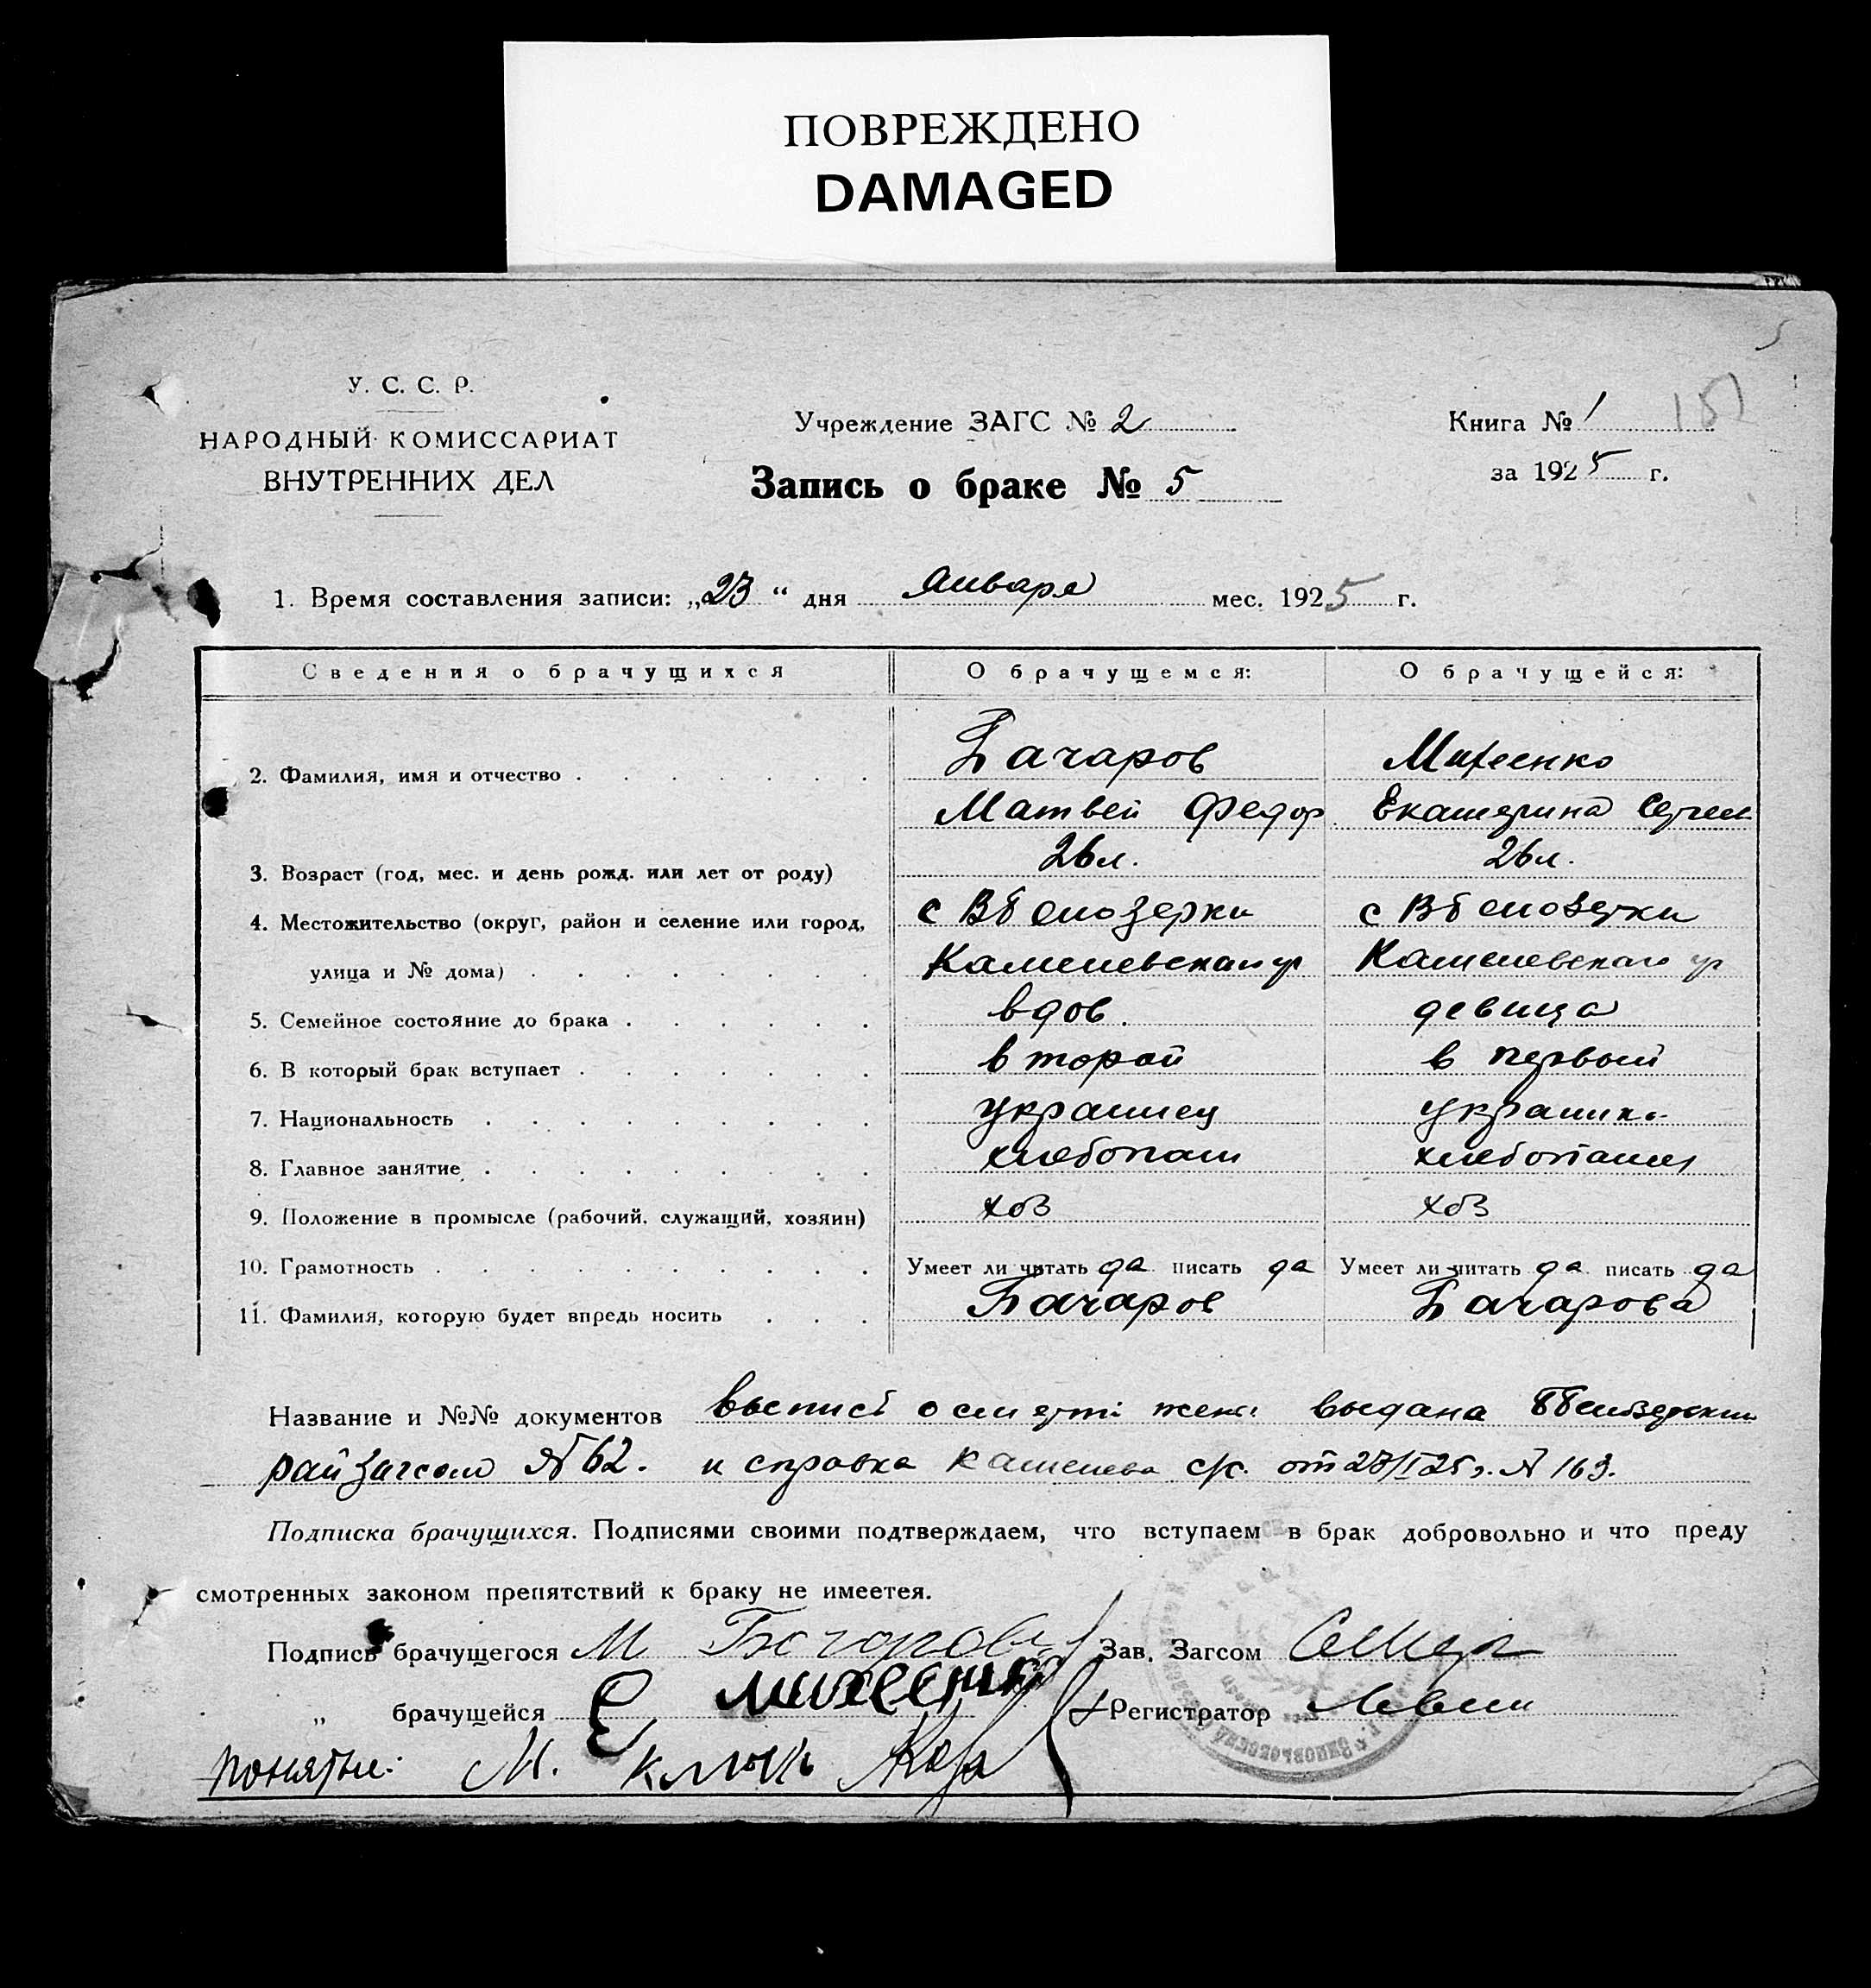 ПОВРЕЖДЕНО
DAMAGED
5
У. С. С. Р.
НАРОДНЫЙ КОМИССАРИАТ
ВНУТРЕННИХ ДЕЛ
Учреждение ЗАГС № 2
Запись о браке № 5
Книга № 1
за 1925 г.
1. Время составления записи: „23“ дня января мес. 1925 г.
Сведения о брачущихся О брачущемся: О брачущейся:
Бачаров Михеенко
2. Фамилия, имя и отчество
Матвей Федор Екатерина Сергеев
26 л. 26 л.
3. Возраст (год, мес. и день рожд. или лет от роду)
4. Местожительство (округ, район и селение или город, с ВБелозерки с ВБелозерки
улица и № дома)
5. Семейное состояние до брака вдов. девица
6. В который брак вступает второй в первый
7. Национальность украинец украинк
8. Главное занятие хлебопаш хлебопашец
9. Положение в промысле (рабочий, служащий, хозяин) хоз хоз
10. Грамотность Умеет ли читать да писать да Умеет ли читать да писать да
11. Фамилия, которую будет впредь носить Бачаров Бачарова
Название и №№ документов выпись о смерти жены выдана
райзагсом № 62. и справка с/с. от 23/I 25 г. № 163.
Подписка брачущихся. Подписями своими подтверждаем, что вступаем в брак добровольно и что преду
смотренных законом препятствий к браку не имеетея.
Подпись брачущегося М Бочоров Зав. Загсом
„ брачущейся Е Михеенко Регистратор
понятые: М. Клюкь